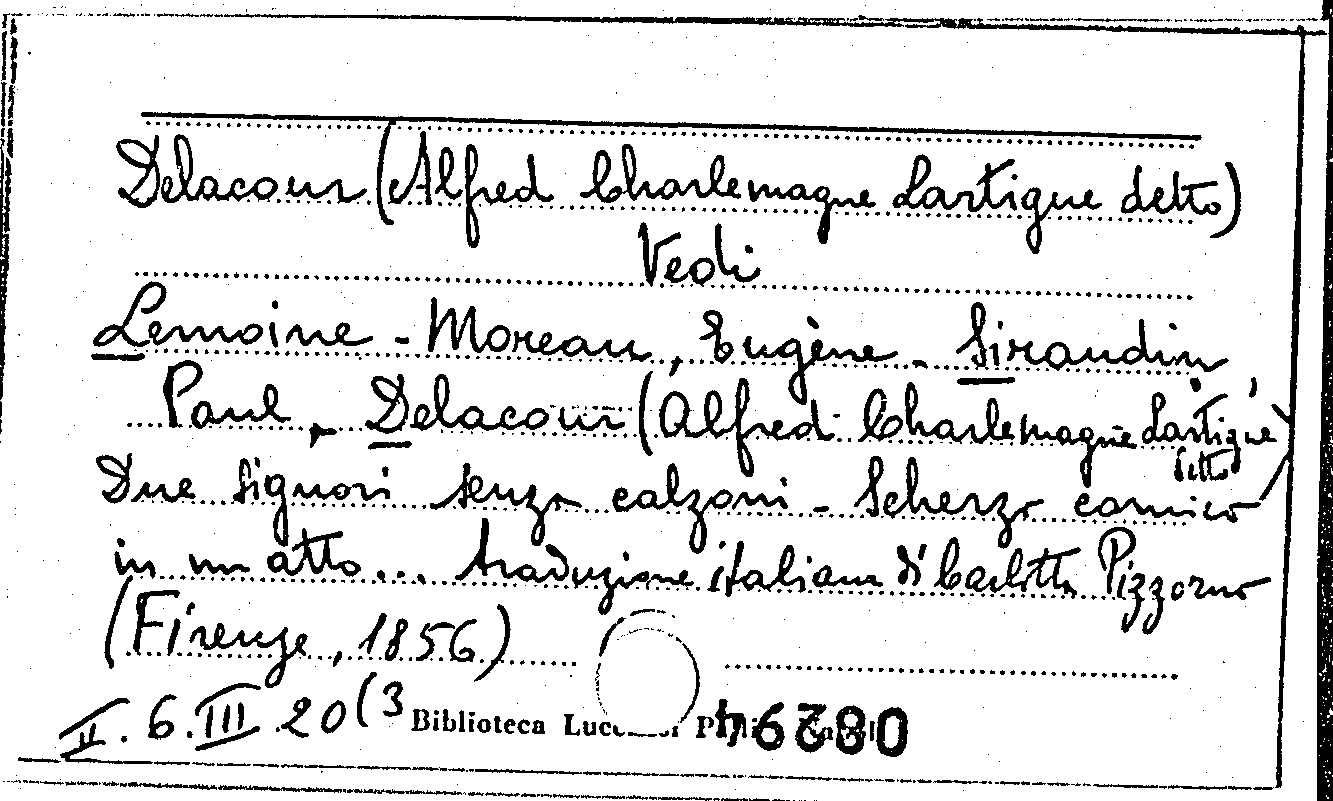 Delacour (Alfred Charlemagne Lartigue detto)
Vedi
Lemoine - Moreau, Eugène - Siraudin,
Paul, - Delacour (Alfred Charlemagne Lartigue
detto)
Due signori senza calzoni - Scherzo comico
in un atto... traduzione italiana di Carlotta Pizzorno
(Firenze, 1856)
II. 6. III. 20 (3
Biblioteca